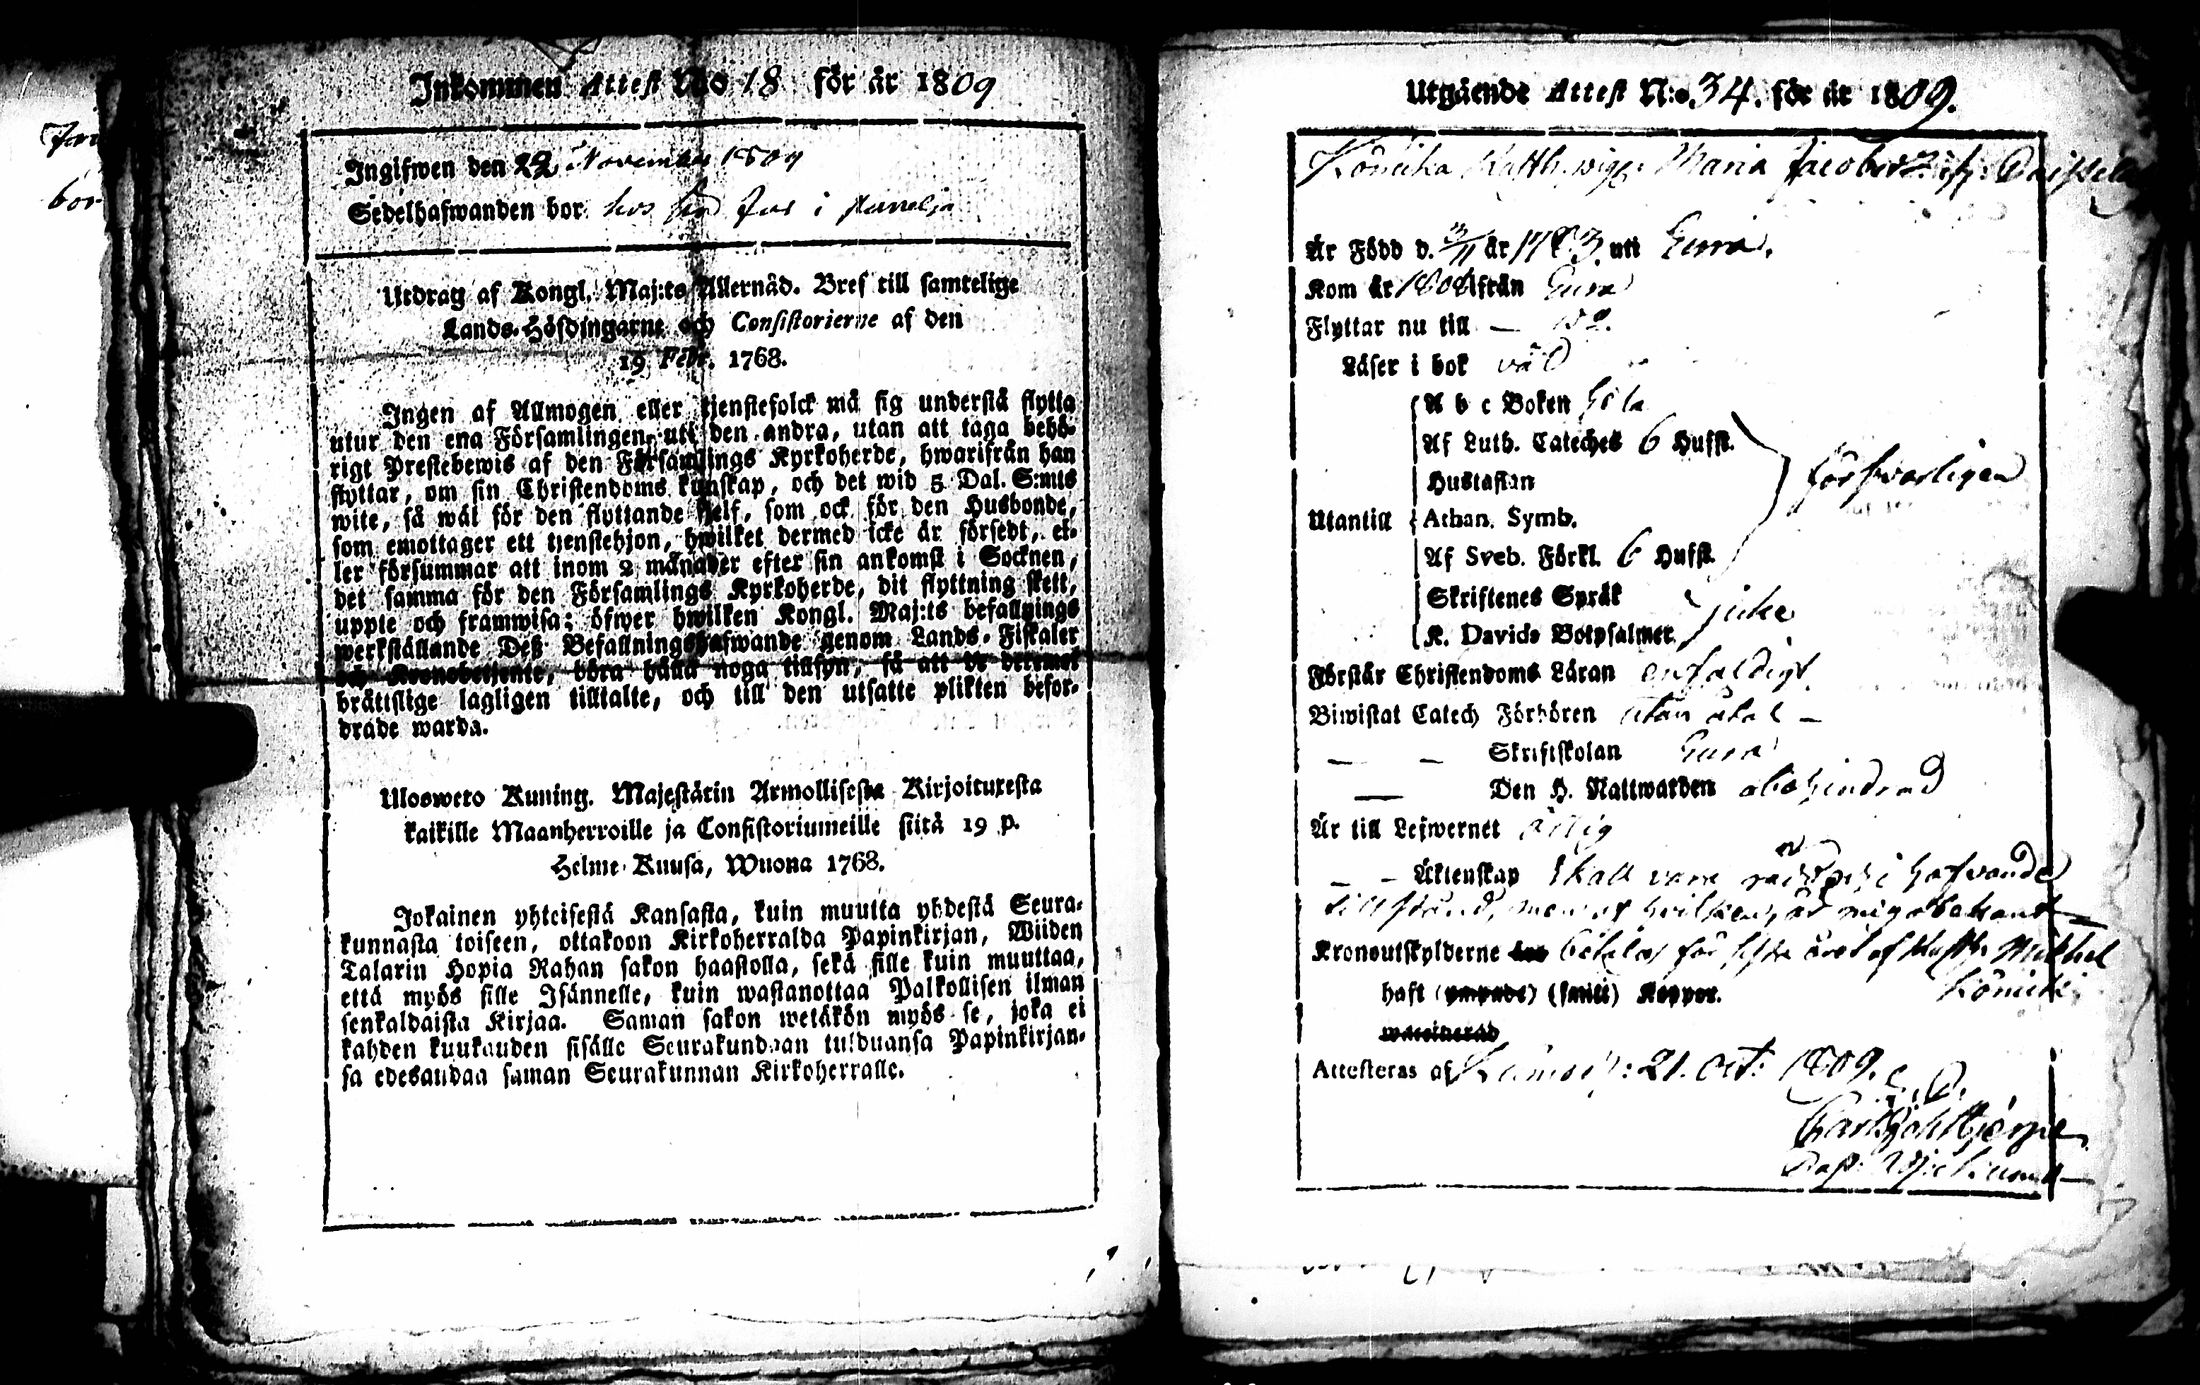 Inkommen Attest No 18 för år 1809
Ingifwen den 22 November 1809
Sedelhafwanden bor hos sin Far i
Utdrag af Kongl. Maj:ts Allernåd. Bref till samtelige
Lands-Höfdingarne och Consistorierne af den
19 Febr. 1768.
Ingen af Allmogen eller tjenstefolck må sig understå flytta
utur den ena Församlingen, uti den andra, utan att taga behö-
rigt Prestebewis af den Församlings Kyrkoherde, hwarifrån han
flyttar, om sin Christendoms kunskap, och det wid 5 Dal. S:mts
wite, så wäl för den flyttande sjelf, som ock för den Husbonde,
som emottager ett tjenstehjon, hwilket dermed icke är försedt, el-
ler försummar att inom 2 månader efter sin ankomst i Socknen,
det samma för den Församlings Kyrkoherde, dit flyttning skett,
uppte och framwisa; öfwer hwilken Kongl. Maj:ts befallnings
werkställande Deß Befallningshafwande genom Lands-Fiskaler
och Kronobetjente, böra hålla noga tillsyn, så att de deremot
bråttslige lagligen tilltalte, och till den utsatte plikten befor-
drade warda.
Uloswero Kuning. Majestätin Armollisesta Kirjoituxesta
kaikille Maanherroille ja Consistoriumeille siitä 19 p.
Helme-Kuusa, Wuona 1768.
Jokainen yhteisestä Kansasta, kuin muutta yhdestä Seura-
kunnasta toiseen, ottakoon Kirkoherralda Papinkirjan, Wiiden
Talarin Hopia Rahan sakon haastolla, sekä sille kuin muuttaa,
että myös sille Isännelle, kuin wastanottaa Palkollisen ilman
senkaldaista Kirjaa. Saman sakon wetäkön myös se, joka ei
kahden kuukauden sisälle Seurakundaan tulduansa Papinkirjan-
sa edesandaa saman Seurakunnan Kirkoherralle.
Utgående Attest N:o 34. för år 1809.
Maria Jacobsd:r
Är Född d. 13/11 år 1783 uti Eura.
Kom år ifrån Eura
Flyttar nu till —
Läser i bok väl
A b c Boken Hela
Af Luth. Cateches 6 Hufst.
Hustaflan försvarligen
Utantill Athan. Symb.
Af Sveb. Förkl. 6 Hufst.
Skriftenes Språk
K. Davids Botpsalmer. icke
Förstår Christendoms Läran enfaldigt
Biwistat Catech Förhören utan åtal —
— — Skriftskolan Eura
— Den H. Nattwarden obehindrad
Är till Lefwernet ärlig
— — Äktenskap skall vara i hafvande
tillstånd, men af hvilken, är mig obekant —
Kronoutskylderne betalas för sista året af Matth. Michel
haft (ympade) (smitt) Koppor.
waccinerad
Attesteras af 21. Oct: 1809.